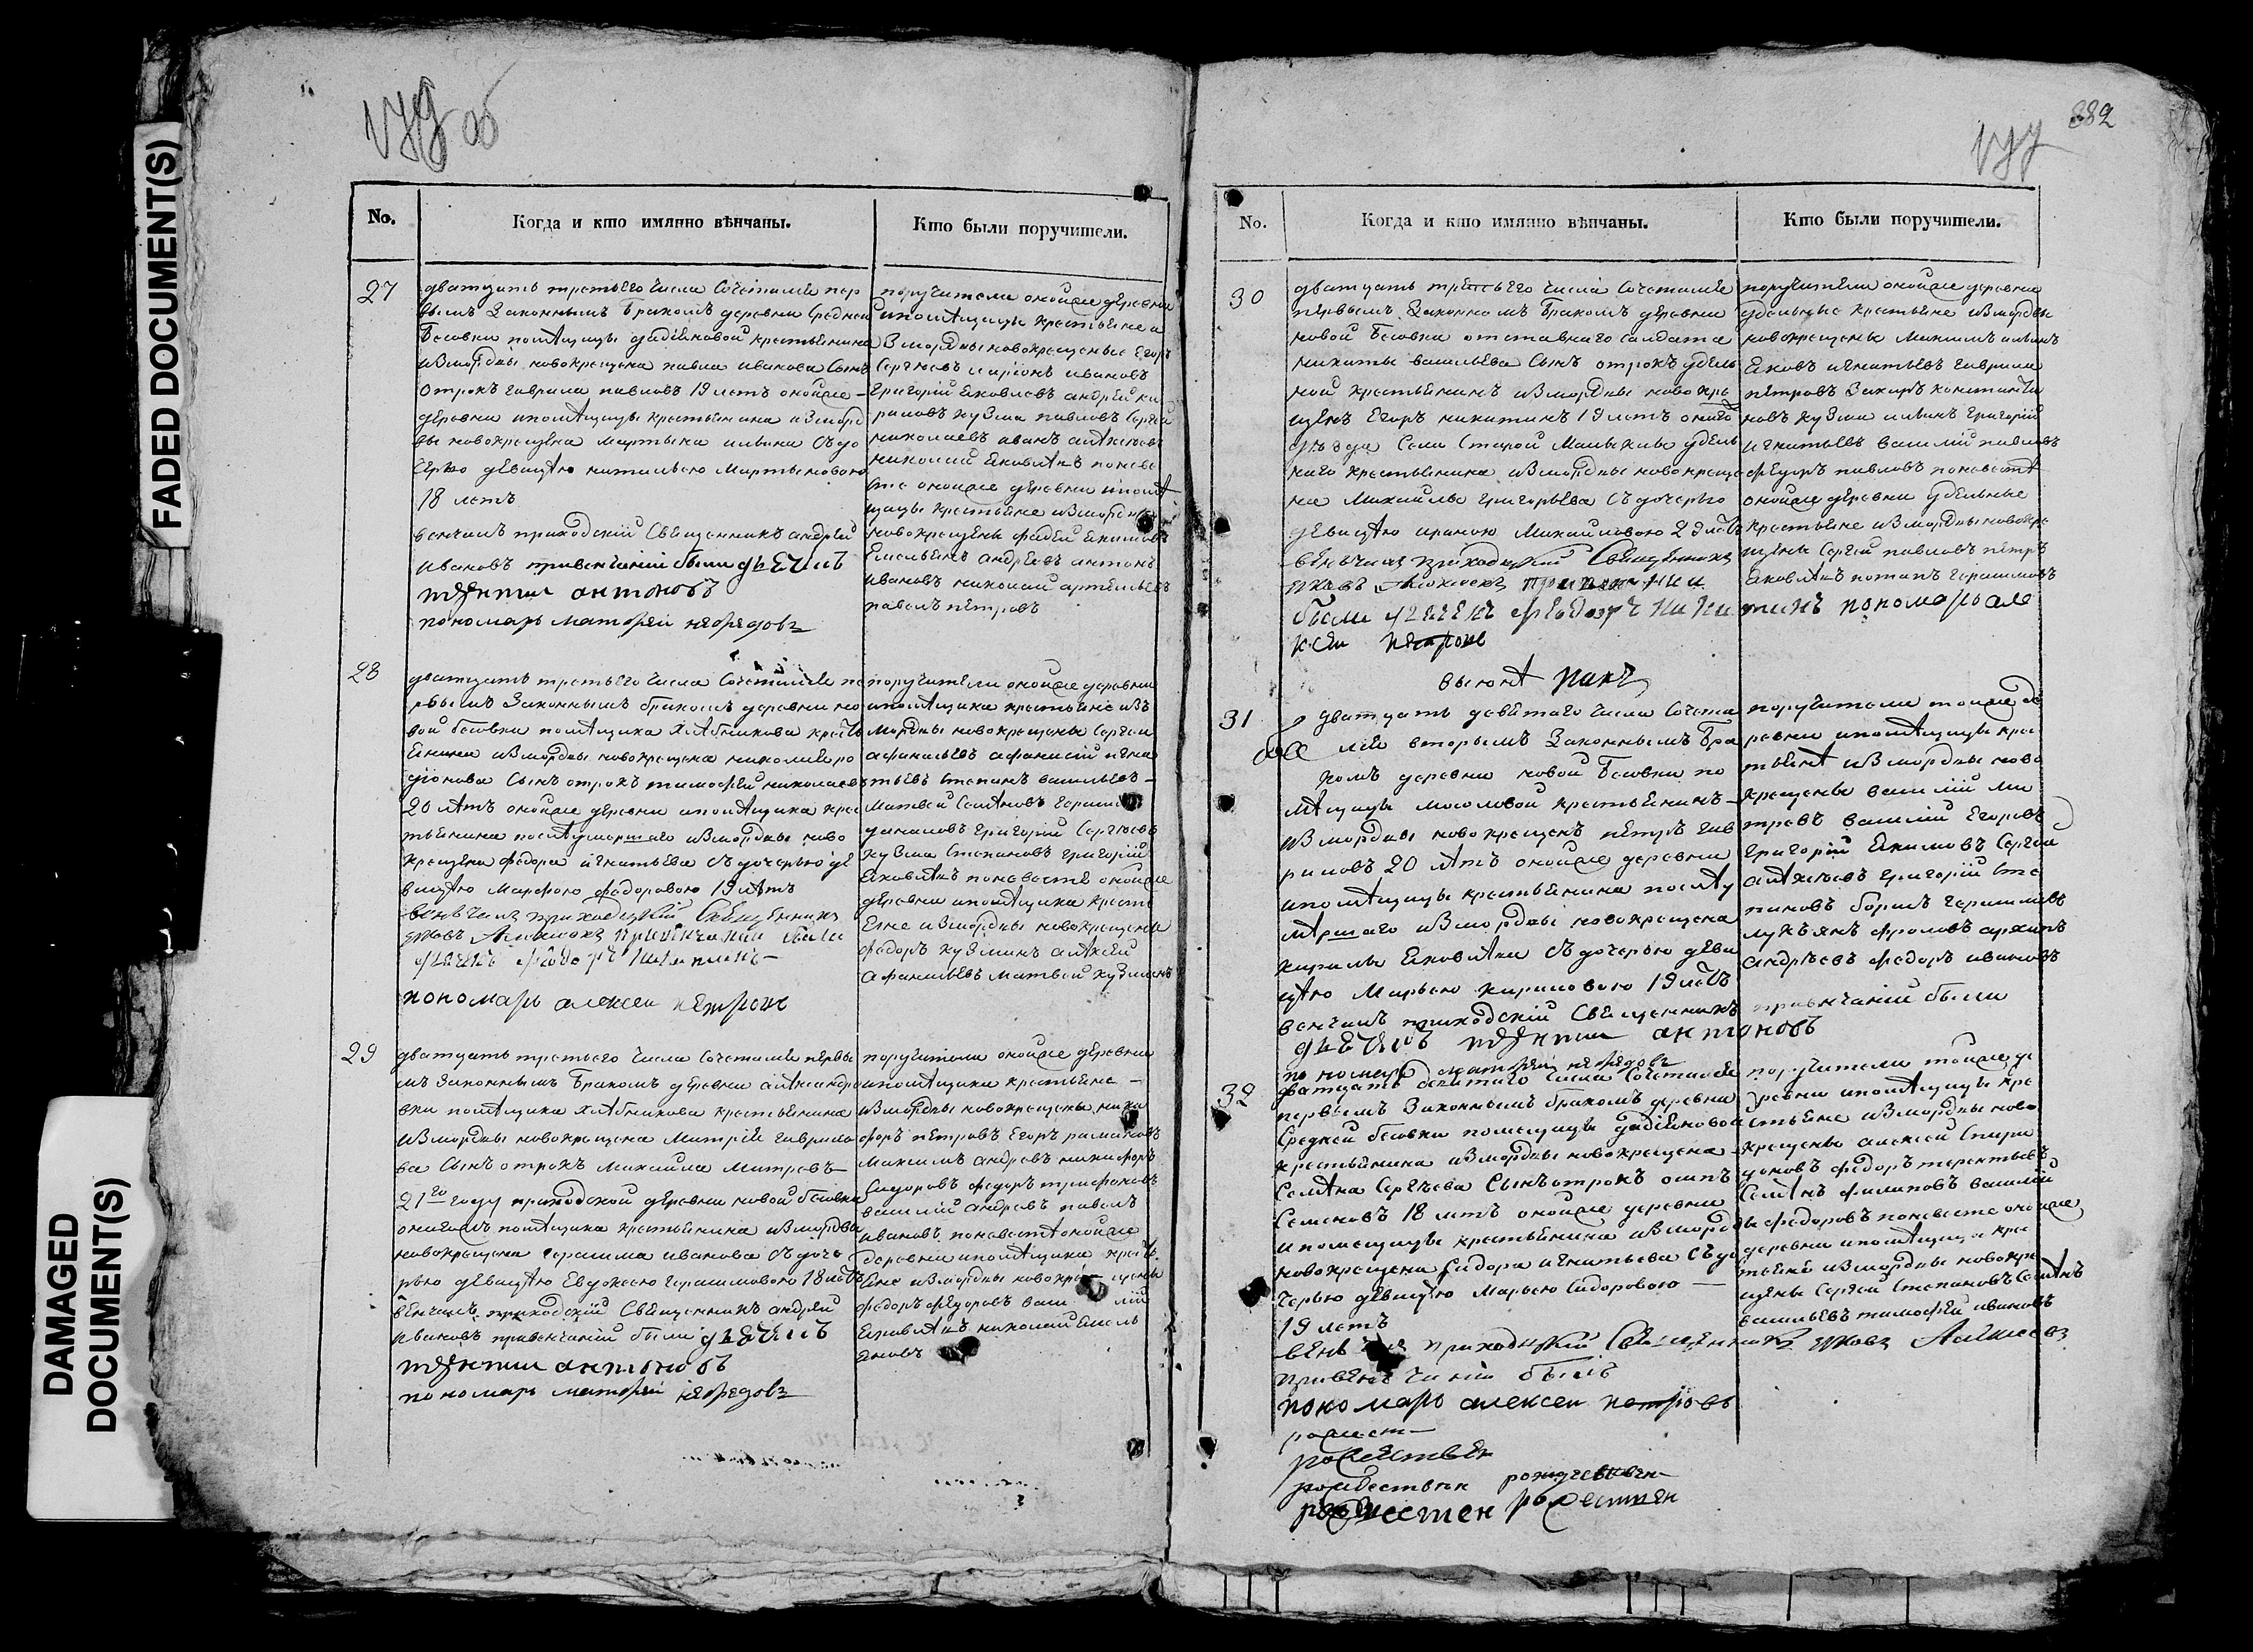 DAMAGED DOCUMENT(S)
FADED DOCUMENT(S)
об
No.
Когда и кто имянно вѣнчаны.
Кто были поручители.
27
дватцать третьего числа сочеталие пер
вымъ законнымъ бракомъ деревни средней
Бесовки помѣщицы крестьянина
измордвы новокрещена павла иванова сынъ
отрокъ гаврила павловъ 19 летъ оной же
деревни ипомѣщицы крестьянина измор
вы новокрещена мартына ильина съдо
серью девицею наталью Мартыновою
18 летъ
венчалъ приходский священникъ андрей
ивановъ привенчании были дьячокъ
антоновъ
пономарь матфей
поручители оной же деревни
ипомѣщицы крестьяне
змордвы новокрещеные Егоръ
Сергеевъ ларионъ ивановъ
григорий яковлевъ андрей ки
риловъ кузма павловъ сергей
николаевъ иванъ алѣксеевъ
николай яковлѣвъ поневе
сте оной же деревни ипомѣ
щицы крестьяне измордвы
новокрещены фадей якимовъ
Емельянъ андреевъ антонъ
ивановъ николай артемьевъ
павелъ петровъ
28
дватцать третьего числа сочеталие пе
рвымъ законнымъ бракомъ деревни но
вой бесовки помѣщика Хлѣбникова крестъ
янина измордвы новокрещена николая ро
дионова сынъ отрокъ тимофей николаевъ
20 лѣтъ оной же деревни ипомѣщика крес
тьянина послѣумершаго измордвы ново
крещена федора игнатьева съдочерью де
вицею марфою федоровою 19 лѣтъ
венчалъ приходский священникъ
яковъ Алексеевъ привенчании были
дьячекъ
пономарь алексеи петровъ
поручители оной же деревни
ипомѣщика крестьяне изъ
мордвы новокрещены сергеи
афанасьевъ афанасий игна
тьевъ степанъ васильевъ
матвей семѣновъ гераси
даниловъ григорий сергеевъ
кузма степановъ григорий
яковлѣвъ поневесте оной же
деревни ипомѣщика кресть
яне измордвы новокрещены
федоръ кузминъ алѣксей
афанасьевъ матвей кузминъ
29
дватцать третьего числа сочеталие первы
мъ законнымъ бракомъ деревни алѣксандро
вки помѣщика хлѣбникова крестьянина
измордвы новокрещена митрия гаврило
ва сынъ отрокъ михаила митревъ
21го году приходской деревни новой бесовки
помѣщика крестьянина измордвы
новокрещена герасима иванова съдоче
рью девицею Евдокеею герасимовою 18 летъ
венчалъ приходский священникъ андрей
ивановъ привенчании были дьячокъ
антоновъ
пономарь матфей
поручители оной же деревни
ипомѣщика крестьяне
измордвы новокрещены ники
форъ петровъ Егоръ
максимъ андревъ никифоръ
сидоровъ федоръ трифоновъ
василий андревъ павелъ
ивановъ поневестѣ оной же
деревни ипомѣщика кресть
яне измордвы новокрещены
федоръ федоровъ васи лий
яковлѣвъ николай Емель
яновъ
882
No.
Когда и кто имянно вѣнчаны.
Кто были поручители.
30
дватцать третьего числа сочеталие
первымъ законномъ бракомъ деревни
новой бесовки отставнаго салдата
никиты васильева сынъ отрокъ удель
ной крестьянинъ измордвы новокре
щенъ Егоръ никитинъ 19 летъ
уѣзда села старой удель
наго крестьянина измордвы новокреще
на михаилы григорьева съдочерью
девицею ириною михаиловою 23 летъ
венчалъ приходский священникъ
яковъ Алексеевъ привенчании
были дьячекъ федоръ никитинъ пономарь але
ксеи петровъ
поручители оной же деревни
удельные крестьяне измордвы
новокрещены михаилъ ильинъ
яковъ игнатьевъ гаврила
петровъ захаръ константи
новъ кузма ильинъ григорий
игнатьевъ василий павловъ
федоръ павловъ поневестѣ
оной же деревни удельные
крестьяне измордвы новокре
щены сергей павловъ петръ
яковлѣвъ потапъ герасимовъ
31
дватцать девятаго числа сочета
лие вторымъ законнымъ бра
комъ деревни новой бесовки по
мѣщицы мосоловой крестьянинъ
измордвы новокрещенъ петръ гав
риловъ 20 лѣтъ оной же деревни
ипомѣщицы крестьянина послѣу
мѣршаго измордвы новокрещена
кирилы яковлѣва съдочерью деви
цею марьею кириловою 19 летъ
венчалъ приходский священникъ привенчании были
дьячокъ антоновъ
пономарь матфей
поручители той же де
ревни ипомѣщицы кре
стьянѣ измордвы ново
крещены василий ми
тревъ василий Егоровъ
григорий якимовъ сергей
алѣксеевъ григорий сте
пановъ борисъ герасимовъ
лукьянъ фроловъ архипъ
андреевъ федоръ ивановъ
32
дватцать девятаго числа сочеталие
первымъ законнымъ бракомъ деревни
средней бесовки помещицы
крестьянина измордвы новокрещена
семѣна сергѣева сынъ отрокъ
семеновъ 18 летъ оной же деревни
ипомещицы крестьянина измордвы
новокрещена сидора игнатьева съдо
черью девицею марьею сидоровою
19 летъ
венчалъ приходский священникъ яковъ Алексеевъ
привенчании былъ
пономарь алексеи петровъ
поручители той же де
ревни ипомѣщицы кре
стьяне измордвы ново
крещены алексей спири
доновъ федоръ терентьевъ
семѣнъ филиповъ василий
федоровъ поневесте оной же
деревни ипомѣщицы крес
тьяне измордвы новокре
щены сергей степановъ семѣнъ
васильевъ тимофей ивановъ